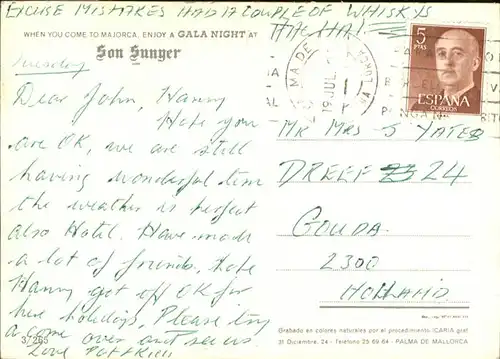 EXCUSE MISTAKES HAD A COUPLE OF WHISKYS
HA HA!
WHEN YOU COME TO MAJORCA, ENJOY A GALA NIGHT AT
Son Sunyer
Tuesday
Dear John, Nanny
Hope you
are OK, we are still
having wonderful time
the weather is perfect
also Hotel. Have made
a lot of friends, hope
Nanny got off OK for
her holidays. Please try
a come over and see us
Love
37265
5
PTAS
ESPAÑA
CORREOS
PALMA DE MALLORCA
19 JUL
MR MRS J YATES
DREEF 24
GOUDA.
2300
HOLLAND
Grabado en colores naturales por el procedimiento ICARIA graf
31 Diciembre, 24 - Teléfono 25 69 64 - PALMA DE MALLORCA